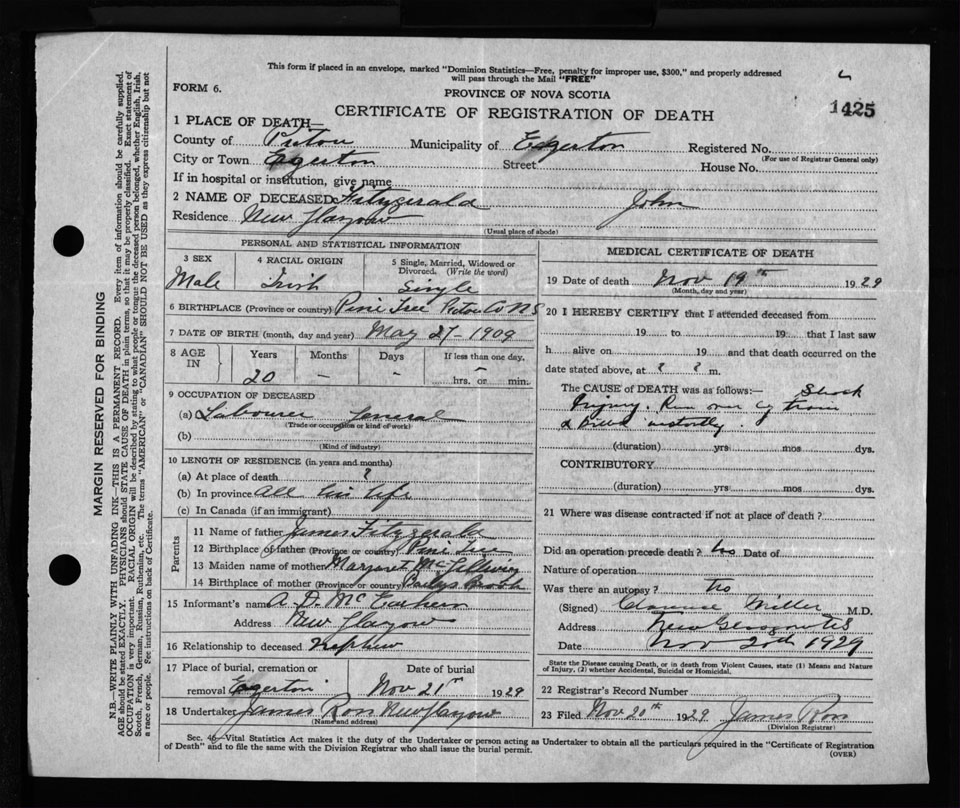 This form if placed in an envelope, marked "Dominion Statistics—Free, penalty for improper use, $300," and properly addressed
will pass through the Mail "FREE"
FORM 6.
PROVINCE OF NOVA SCOTIA
1425
CERTIFICATE OF REGISTRATION OF DEATH
1 PLACE OF DEATH—
County of Pictou Municipality of Egerton Registered No.
(For use of Registrar General only)
City or Town Egerton Street House No.
If in hospital or institution, give name
2 NAME OF DECEASED Fitzgerald John
Residence New Glasgow
(Usual place of abode)
PERSONAL AND STATISTICAL INFORMATION
3 SEX 4 RACIAL ORIGIN 5 Single, Married, Widowed or
Divorced. (Write the word)
Male Irish Single
6 BIRTHPLACE (Province or country) Pine Tree Pictou Co NS
7 DATE OF BIRTH (month, day and year) May 27 1909
8 AGE IN Years Months Days If less than one day,
20 — — — hrs. or min.
9 OCCUPATION OF DECEASED
(a) Labourer General
(Trade or occupation or kind of work)
(b)
(Kind of industry)
10 LENGTH OF RESIDENCE (in years and months)
(a) At place of death ?
(b) In province all his life
(c) In Canada (if an immigrant)
Parents
11 Name of father James Fitzgerald
12 Birthplace of father (Province or country) Pine Tree
13 Maiden name of mother Margaret
14 Birthplace of mother (Province or country) Baileys Brook
15 Informant's name A. D. McEachern
Address New Glasgow
16 Relationship to deceased Nephew
17 Place of burial, cremation or Date of burial
removal Egerton Nov 21 1929
18 Undertaker James Ross New Glasgow
(Name and address)
MEDICAL CERTIFICATE OF DEATH
19 Date of death Nov 19th 1929
(Month, day and year)
20 I HEREBY CERTIFY that I attended deceased from
19 to 19 that I last saw
h alive on 19 and that death occurred on the
date stated above, at ? ? m.
The CAUSE OF DEATH was as follows:— Shock
Injury. Run over by train
& Died instantly.
(duration) yrs mos dys.
CONTRIBUTORY
(duration) yrs mos dys.
21 Where was disease contracted if not at place of death?
Did an operation precede death? No Date of
Nature of operation
Was there an autopsy? No
(Signed) Clarence Miller M.D.
Address New Glasgow NS
Date Nov 20th 1929
State the Disease causing Death, or in death from Violent Causes, state (1) Means and Nature
of Injury, (2) whether Accidental, Suicidal or Homicidal.
22 Registrar's Record Number
23 Filed Nov 20th 1929 James Ross
(Division Registrar)
Sec. 46 Vital Statistics Act makes it the duty of the Undertaker or person acting as Undertaker to obtain all the particulars required in the "Certificate of Registration
of Death" and to file the same with the Division Registrar who shall issue the burial permit.
(OVER)
MARGIN RESERVED FOR BINDING
N.B.—WRITE PLAINLY WITH UNFADING INK—THIS IS A PERMANENT RECORD. Every item of information should be carefully supplied.
AGE should be stated EXACTLY. PHYSICIANS should STATE CAUSE OF DEATH in plain terms, so that it may be properly classified. Exact statement of
OCCUPATION is very important. RACIAL ORIGIN will be described by stating to what people or tongue the deceased person belonged, whether English, Irish,
Scotch, French, German, Russian, Ruthenian, etc. The terms "AMERICAN" or "CANADIAN" SHOULD NOT BE USED as they express citizenship but not
a race or people. Fee instructions on back of Certificate.